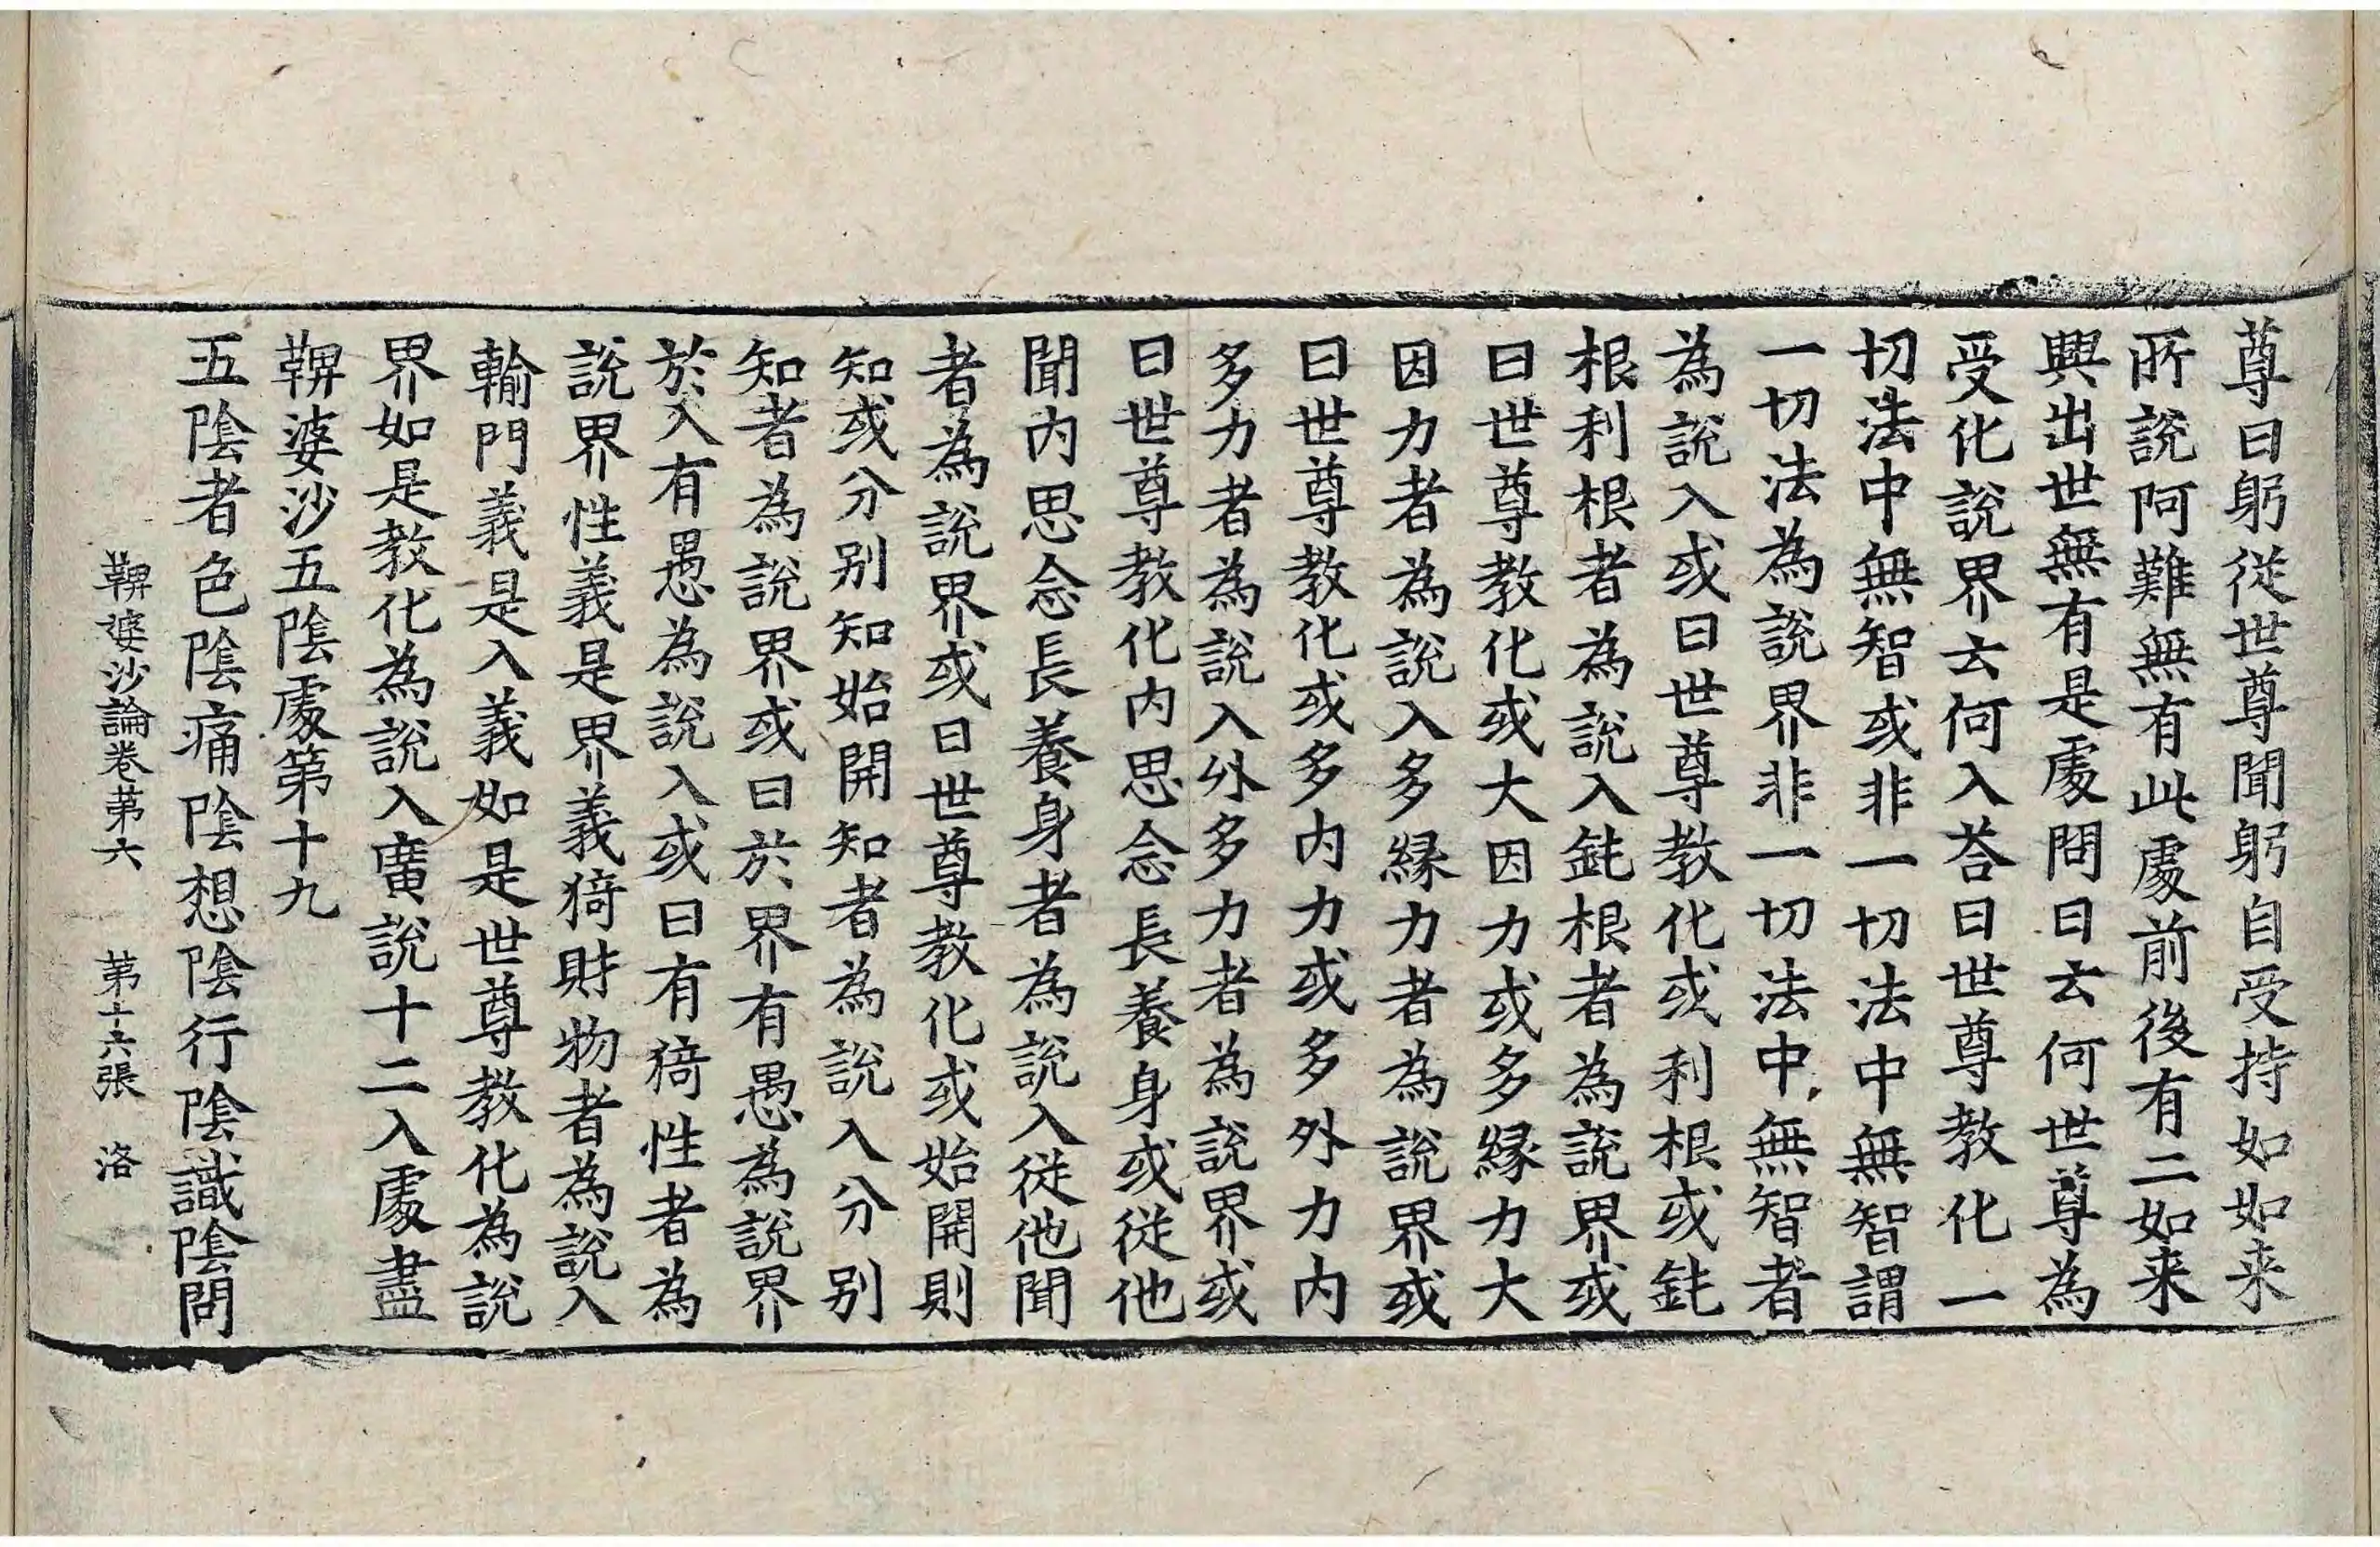 尊曰躬從世尊聞躬自受持如如来
所說阿難無有此處前後有二如来
興出世無有是處問曰云何世尊為
受化說界云何入荅曰世尊教化一
切法中無智或非一切法中無智謂
一切法為說界非一切法中無智者
為說入或曰世尊教化或利根或鈍
根利根者為說入鈍根者為說界或
曰世尊教化或大因力或多緣力大
因力者為說入多緣力者為說界或
曰世尊教化或多内力或多外力内
多力者為說入外多力者為說界或
曰世尊教化内思念長養身或從他
聞内思念長養身者為說入從他聞
者為說界或曰世尊教化或始開則
知或分别知始開知者為說入分别
知者為說界或曰於界有愚為說界
於入有愚為說入或曰有猗性者為
說界性義是界義猗財物者為說入
輸門義是入義如是世尊教化為說
界如是教化為說入廣說十二入處盡
鞞婆沙五陰處第十九
五陰者色陰痛陰想陰行陰識陰問
鞞婆沙論卷第六 第十六張 洛